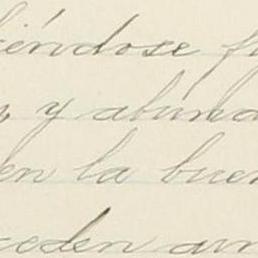 iéndose f
y abund
en la buen
ceden am